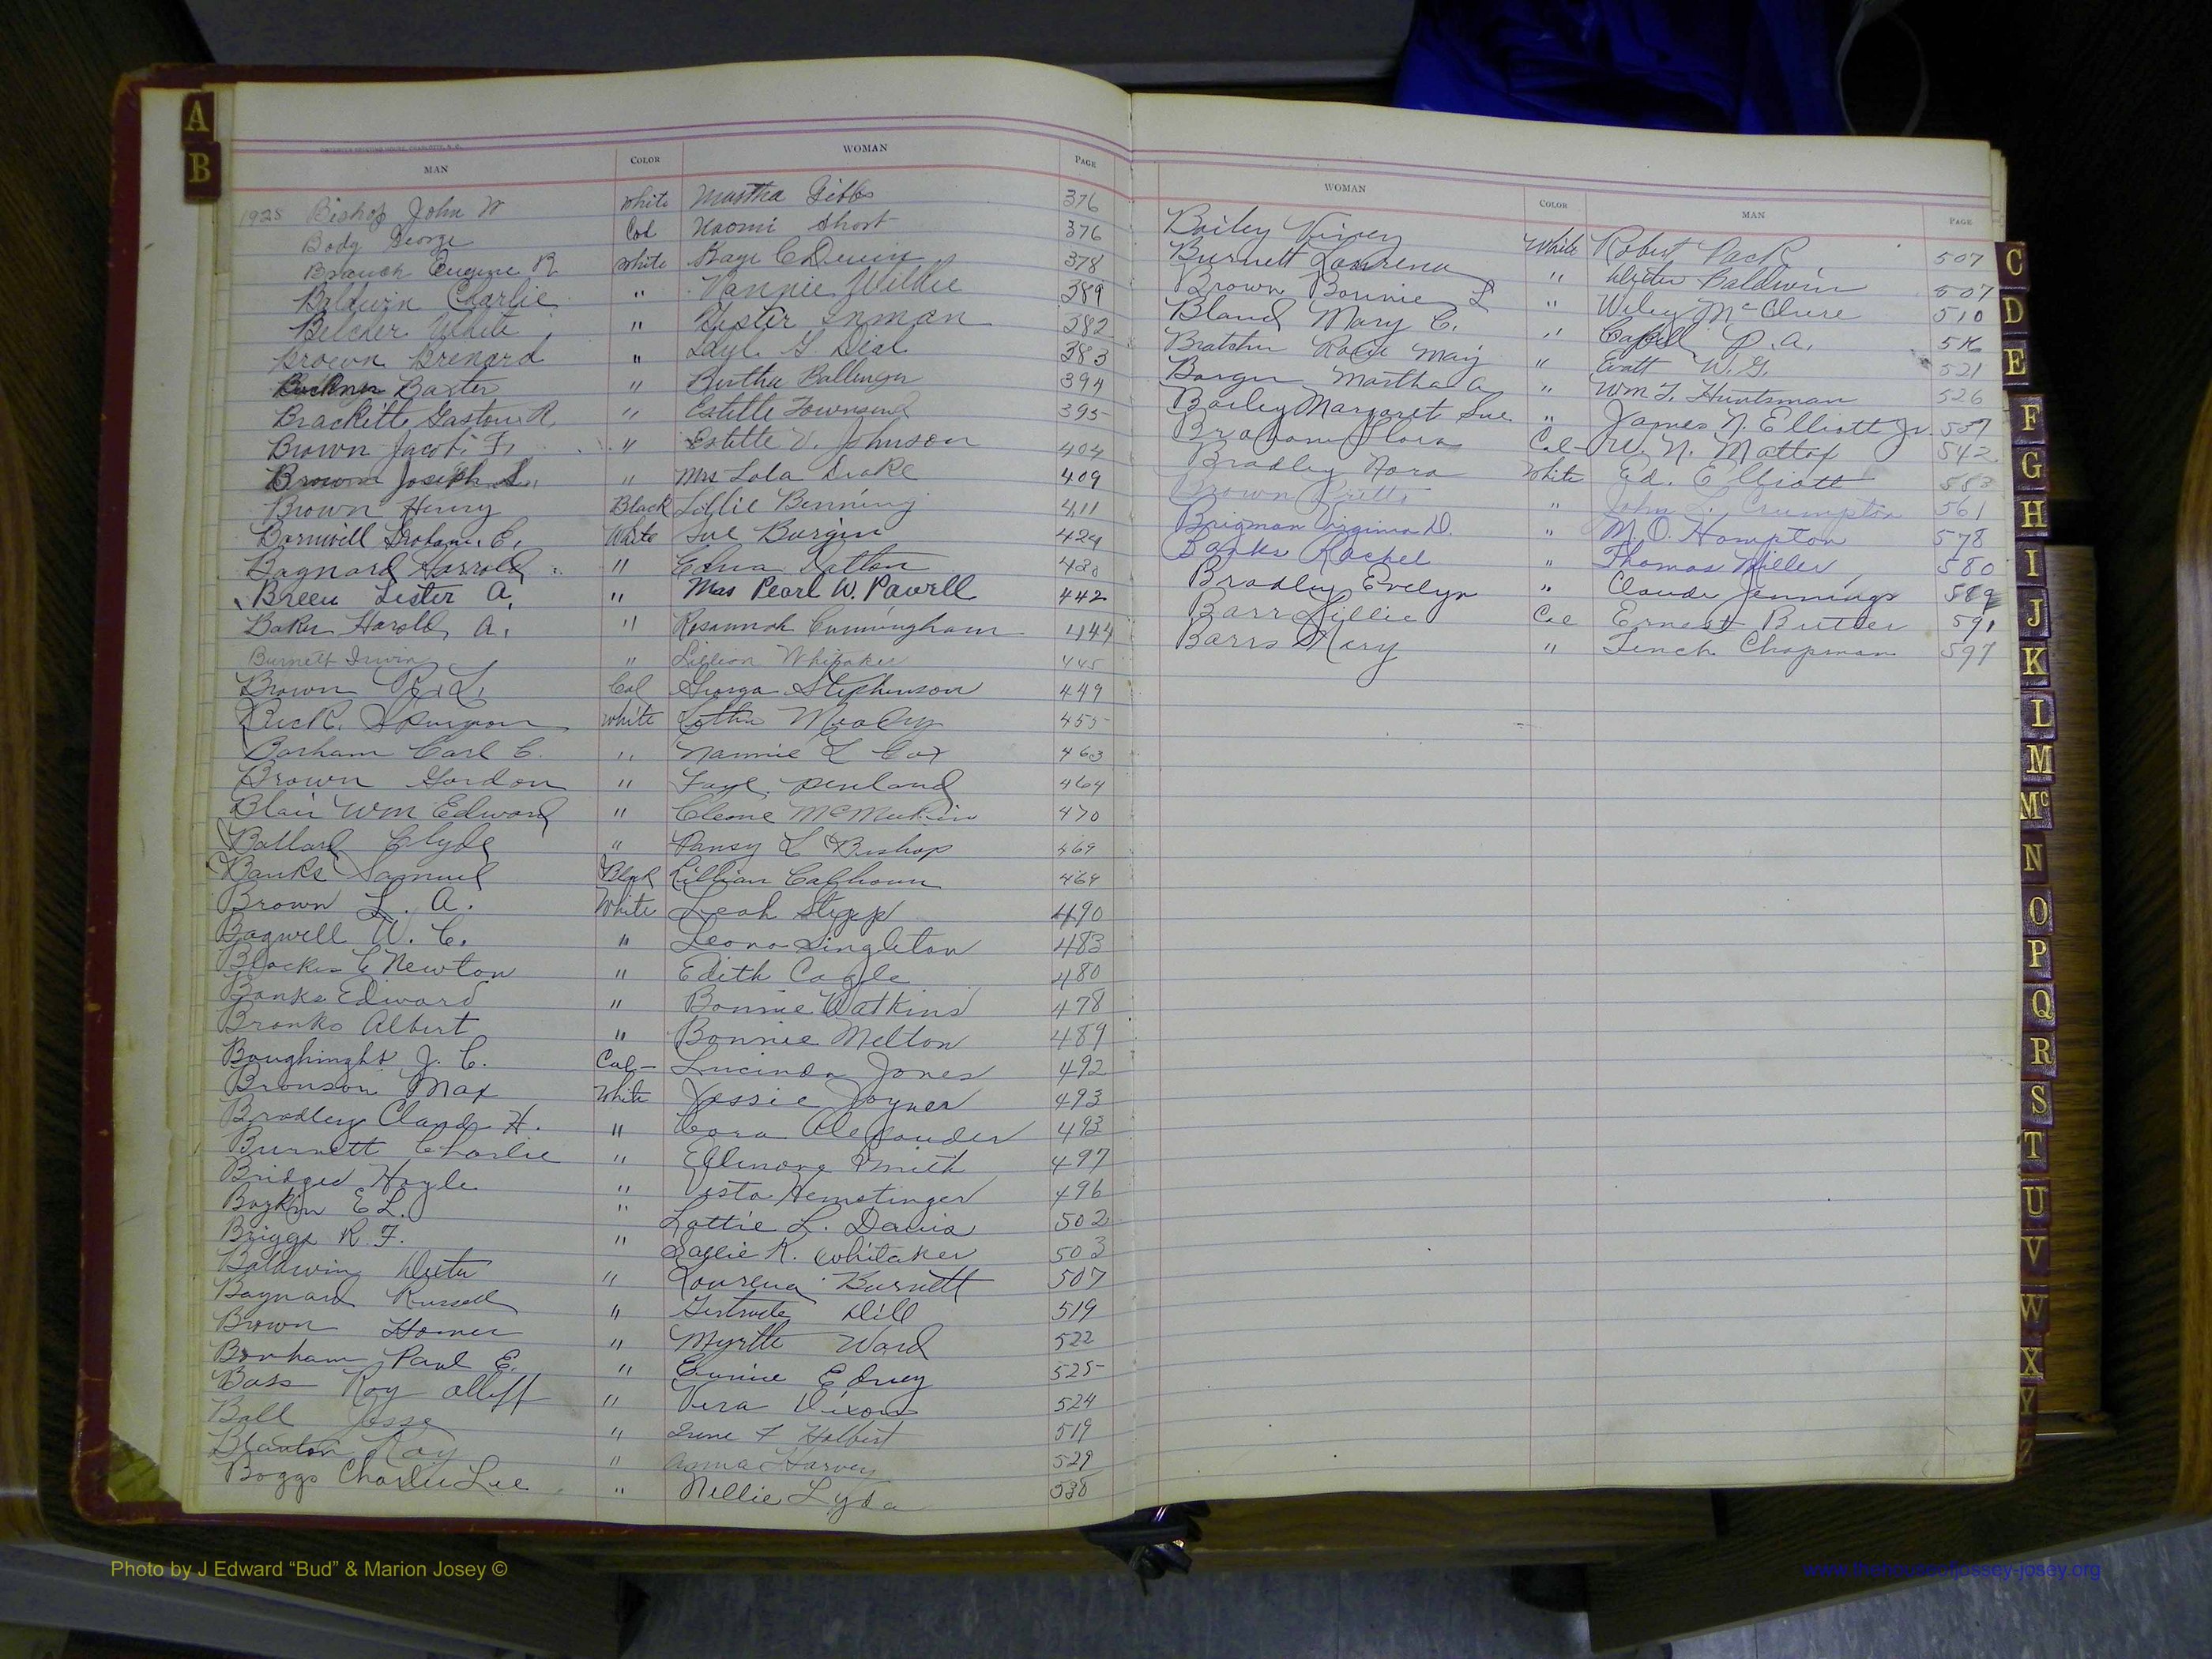 A
B
MAN COLOR WOMAN PAGE
1925 Bishop John W White Martha Gibbs 376
Body George Col Naomi Short 376
Branch Eugene R White 378
Baldwin Charlie " Nannie Willie 389
Belcher White " Hester Inman 382
Brown Brenard " G. Deal 383
Buckner Baxter " Bertha Ballenger 394
Brackitte Gaston R. " Estelle Townsend 395
Brown Jacob F. " Estelle V. Johnson 404
Brown Joseph S. " Mrs Lola Drake 409
Brown Henry Black Lollie Benning 411
Barnwill Graham C. White Sue Burgin 424
Baynard Harrold " Edna Dalton 430
Breen Lester A. " Mrs Pearl W. Powell 442
Baker Harold A. " Rosannah Cunningham 444
Burnett Irwin " Lillian Whitaker 445
Brown R. L. Col Georga Stephenson 449
Beck Spurgeon White 455
Barham Carl C. " Nannie L Cox 463
Brown Gordon " Faye Penland 464
Blair Wm Edward " Cleone 470
Ballard Clyde " Pansy L Bishop 469
Banks Samuel Black Lillian Calhoun 464
Brown L. A. White Leah Stepp 490
Bagwell W. C. " Leona Singleton 483
C Newton " Edith Cagle 480
Banks Edward " Bonnie Watkins 478
Branks Albert " Bonnie Melton 489
J. C. Col- Lucinda Jones 492
Bronson Max White Jessie Joyner 493
Bradley Claude H. " Cora Alexander 493
Burnett Charlie " Ellinora Smith 497
Bridges Hoyle " Vista 496
Boykin E L. " Lottie L. Davis 502
Briggs R. F. " Sallie R. Whitaker 503
Baldwin Dexter " Lourena Burnett 507
Baynard Russell " Gertrude Dill 519
Brown Homer " Myrtle Ward 522
Bonham Paul E. " Eunice Edney 525
Bass Roy Olliff " Vera Dixon 524
Ball Jesse " Irene F Holbert 519
Blanton Roy " Anna Harvey 529
Boggs Charlie Lee " Nellie Lyda 538
WOMAN COLOR MAN PAGE
Bailey Viney White Robert Pack 507
Burnett Lourena " Dexter Baldwin 507
Brown Bonnie L " Wiley McClure 510
Bland Mary C. " P. A. 516
Bratcher Rosie May " Evatt W. G. 521
Barger Martha A " Wm T. Huntsman 526
Bailey Margaret Sue " James N. Elliott Jr. 537
Flora Col- W. N. Mattox 542
Bradley Nora White Ed. Elliott 553
Brown " John L. Crumpton 561
Brigman Virginia D. " M. O. Hampton 578
Banks Rachel " Thomas Miller 580
Bradley Evelyn " Claude Jennings 589
Barr Lillie Col Ernest Butler 591
Barrs Mary " Finch Chapman 597
C
D
E
F
G
H
I
J
K
L
M
Mc
N
O
P
Q
R
S
T
U
V
W
X
Y
Z
Photo by J Edward “Bud” & Marion Josey ©
www.thehouseofjossey-josey.org